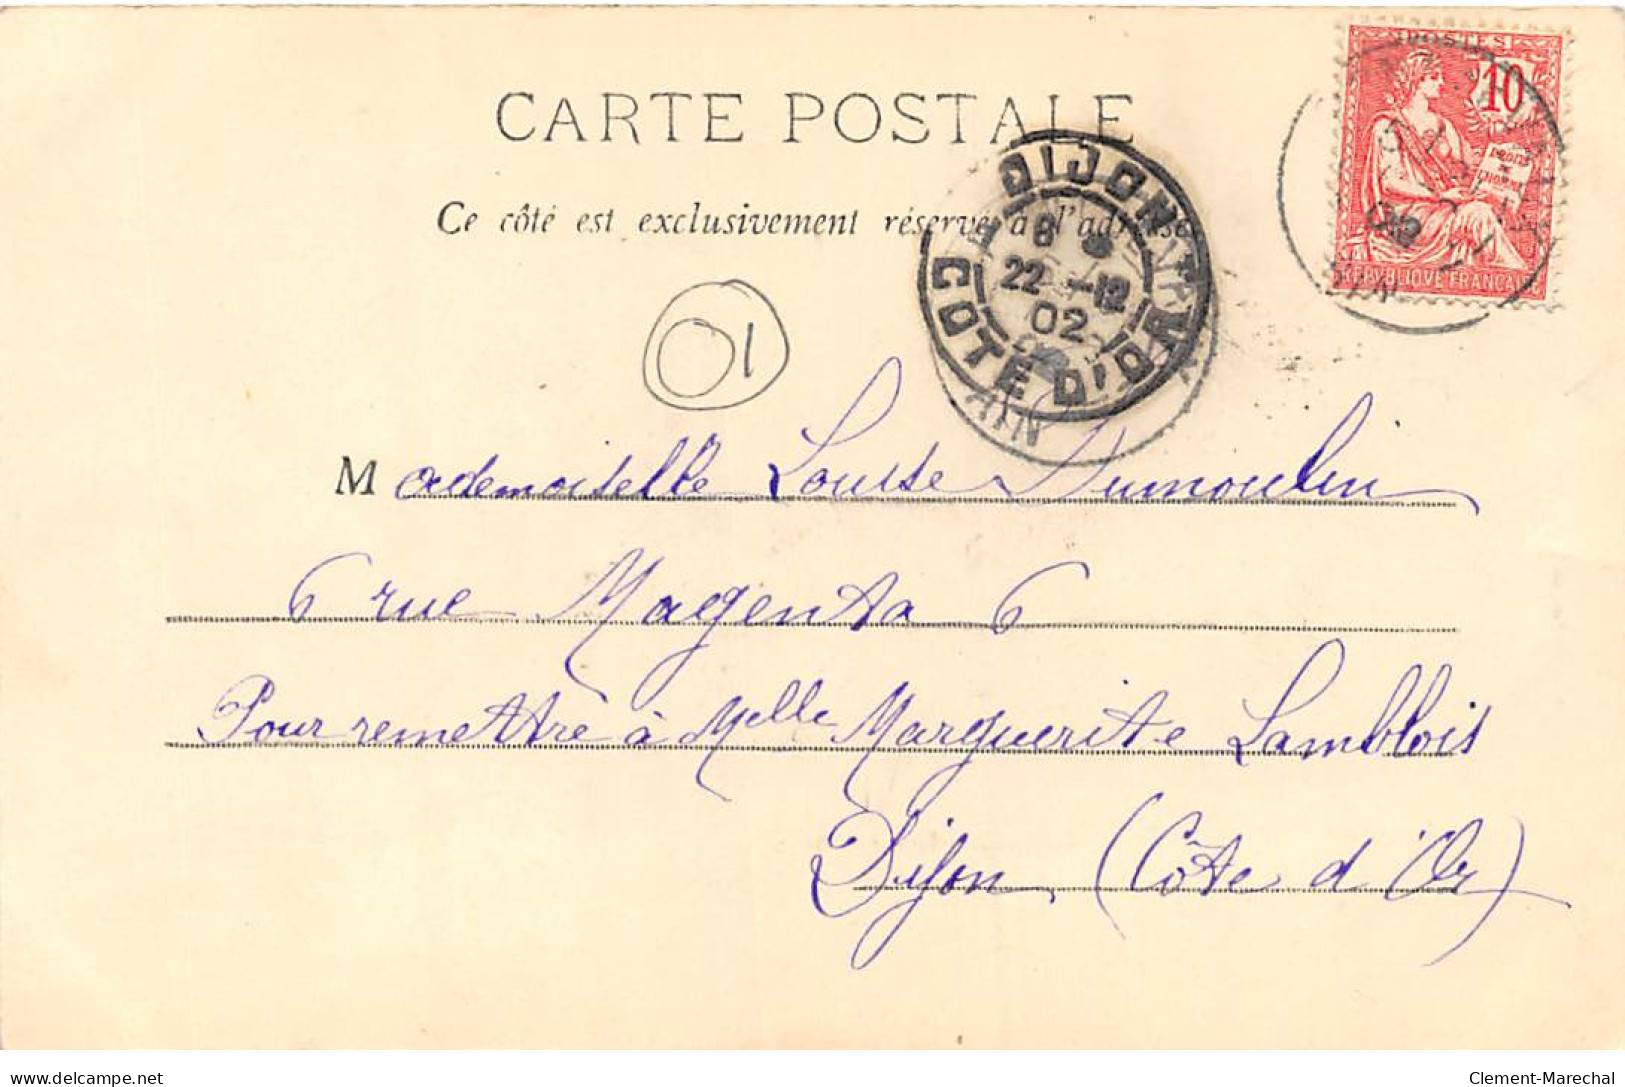 CARTE POSTALE
Ce côté est exclusivement réservé à l'adresse
POSTES
10
DROITS
DE
L'HOMME
REPVBLIQVE FRANÇAISE
DIJON
8
22 -12
02
COTE D'OR
AIN
AIN
01
Mademoiselle Louise Dumoulin
6 rue Magenta 6
Pour remettre à Melle Marguerite Lamblois
Dijon (Côte d'Or)
www.delcampe.net
Clement-Marechal